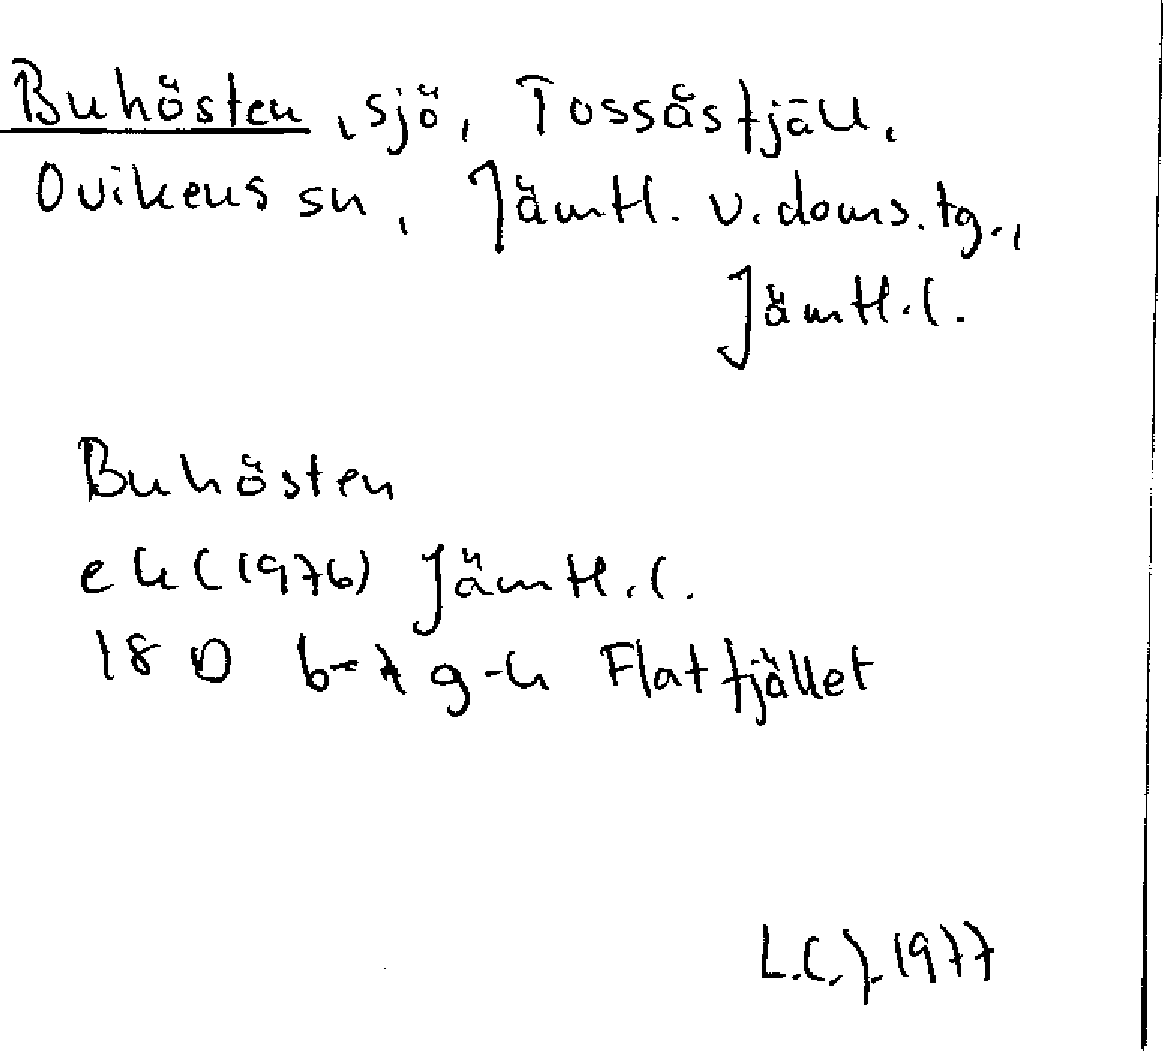 Buhösten, sjö, Tossåsfjäll,
Ovikens sn, Jämtl. v. doms. tg.,
Jämtl. l.
Buhösten
ek (1976) Jämtl. l.
18 D g-h Flatfjället
1977